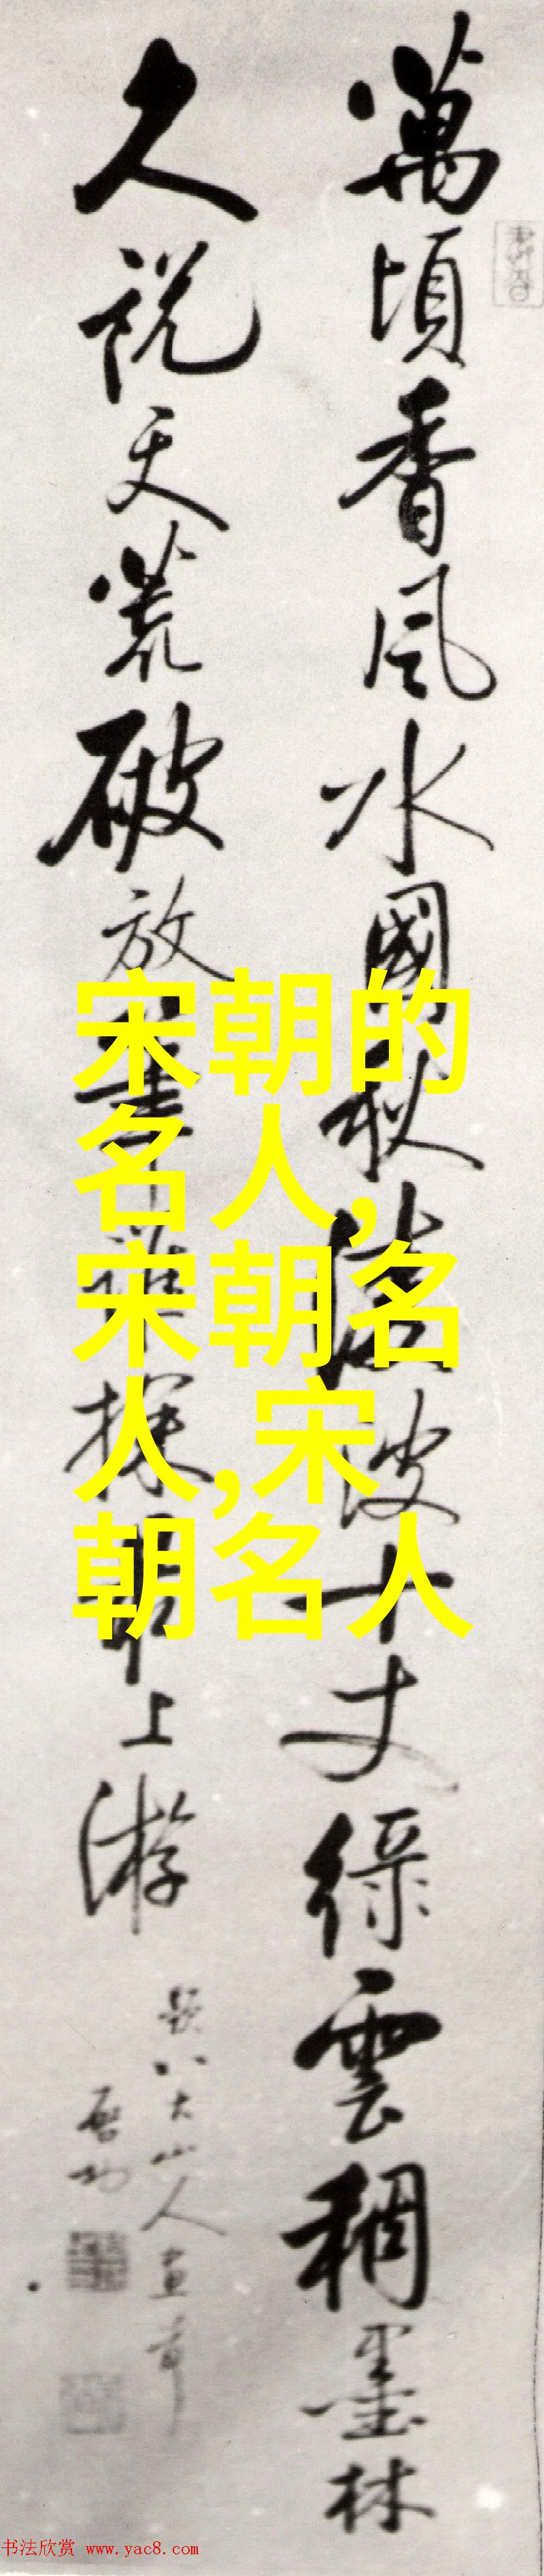 萬頃香風水國秋凌波十丈綠雲稠墨林
久說天荒破放筆誰探最上游
題八大山人畫
啟功
宋朝的
名人,
宋朝名
人,宋
朝名人
书法欣赏 www.yac8.com